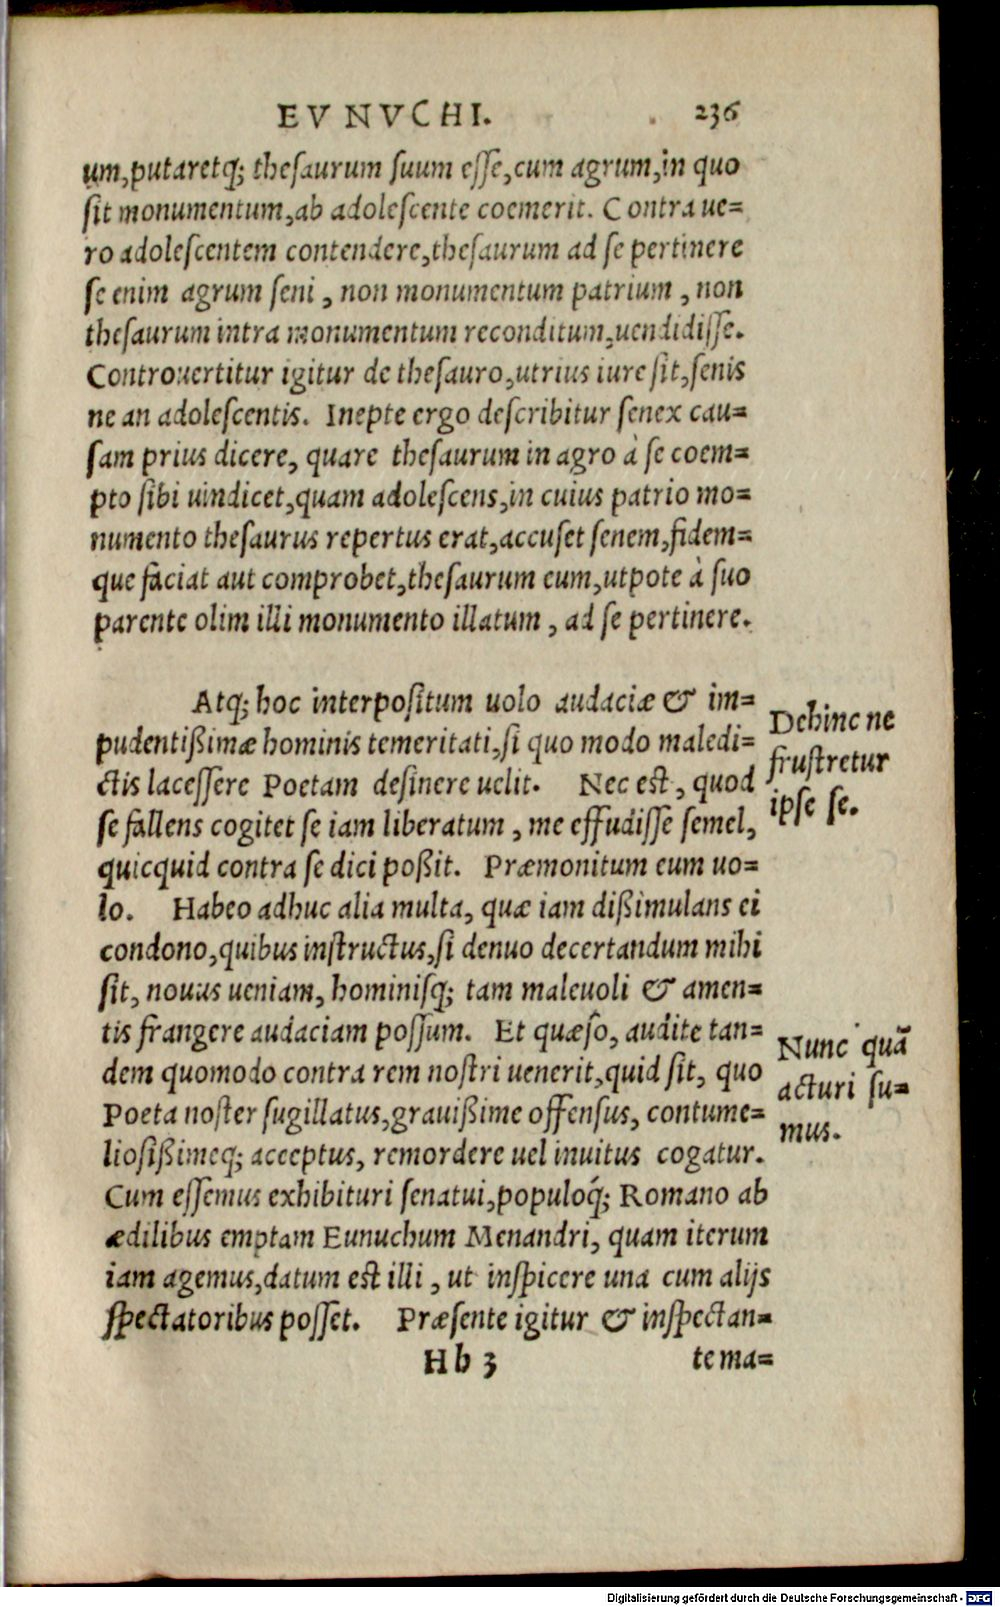 EVNVCHI. 236
um,putaretq; theſaurum ſuum eſſe,cum agrum,in quo
ſit monumentum,ab adoleſcente coemerit. Contra ue=
ro adoleſcentem contendere,theſaurum ad ſe pertinere
ſe enim agrum ſeni , non monumentum patrium , non
theſaurum intra monumentum reconditum,uendidiſſe.
Controuertitur igitur de theſauro,utrius iure ſit,ſenis
ne an adoleſcentis. Inepte ergo deſcribitur ſenex cau=
ſam prius dicere, quare theſaurum in agro à ſe coem=
pto ſibi uindicet,quam adoleſcens,in cuius patrio mo=
numento theſaurus repertus erat,accuſet ſenem,fidem=
que faciat aut comprobet,theſaurum eum,utpote à ſuo
parente olim illi monumento illatum , ad ſe pertinere.
Atq; hoc interpoſitum uolo audaciæ & im=
pudentißimæ hominis temeritati,ſi quo modo maledi=
ctis laceſſere Poetam deſinere uelit. Nec eſt, quod
ſe fallens cogitet ſe iam liberatum , me effudiſſe ſemel,
quicquid contra ſe dici poßit. Præmonitum eum uo=
lo. Habeo adhuc alia multa, quæ iam dißimulans ei
condono,quibus inſtructus,ſi denuo decertandum mihi
ſit, nouus ueniam, hominisq; tam maleuoli & amen=
tis frangere audaciam poſſum. Et quæſo, audite tan=
dem quomodo contra rem noſtri uenerit,quid ſit, quo
Poeta noſter ſugillatus,grauißime offenſus, contume=
lioſißimeq; acceptus, remordere uel inuitus cogatur.
Cum eſſemus exhibituri ſenatui,populoq́; Romano ab
ædilibus emptam Eunuchum Menandri, quam iterum
iam agemus,datum eſt illi , ut inſpicere una cum alijs
ſpectatoribus poſſet. Præſente igitur & inſpectan=
Hb 3 te ma=
Dehinc ne
fruſtretur
ipſe ſe.
Nunc quã
acturi ſu=
mus.
Digitalisierung gefördert durch die Deutsche Forschungsgemeinschaft - DFG